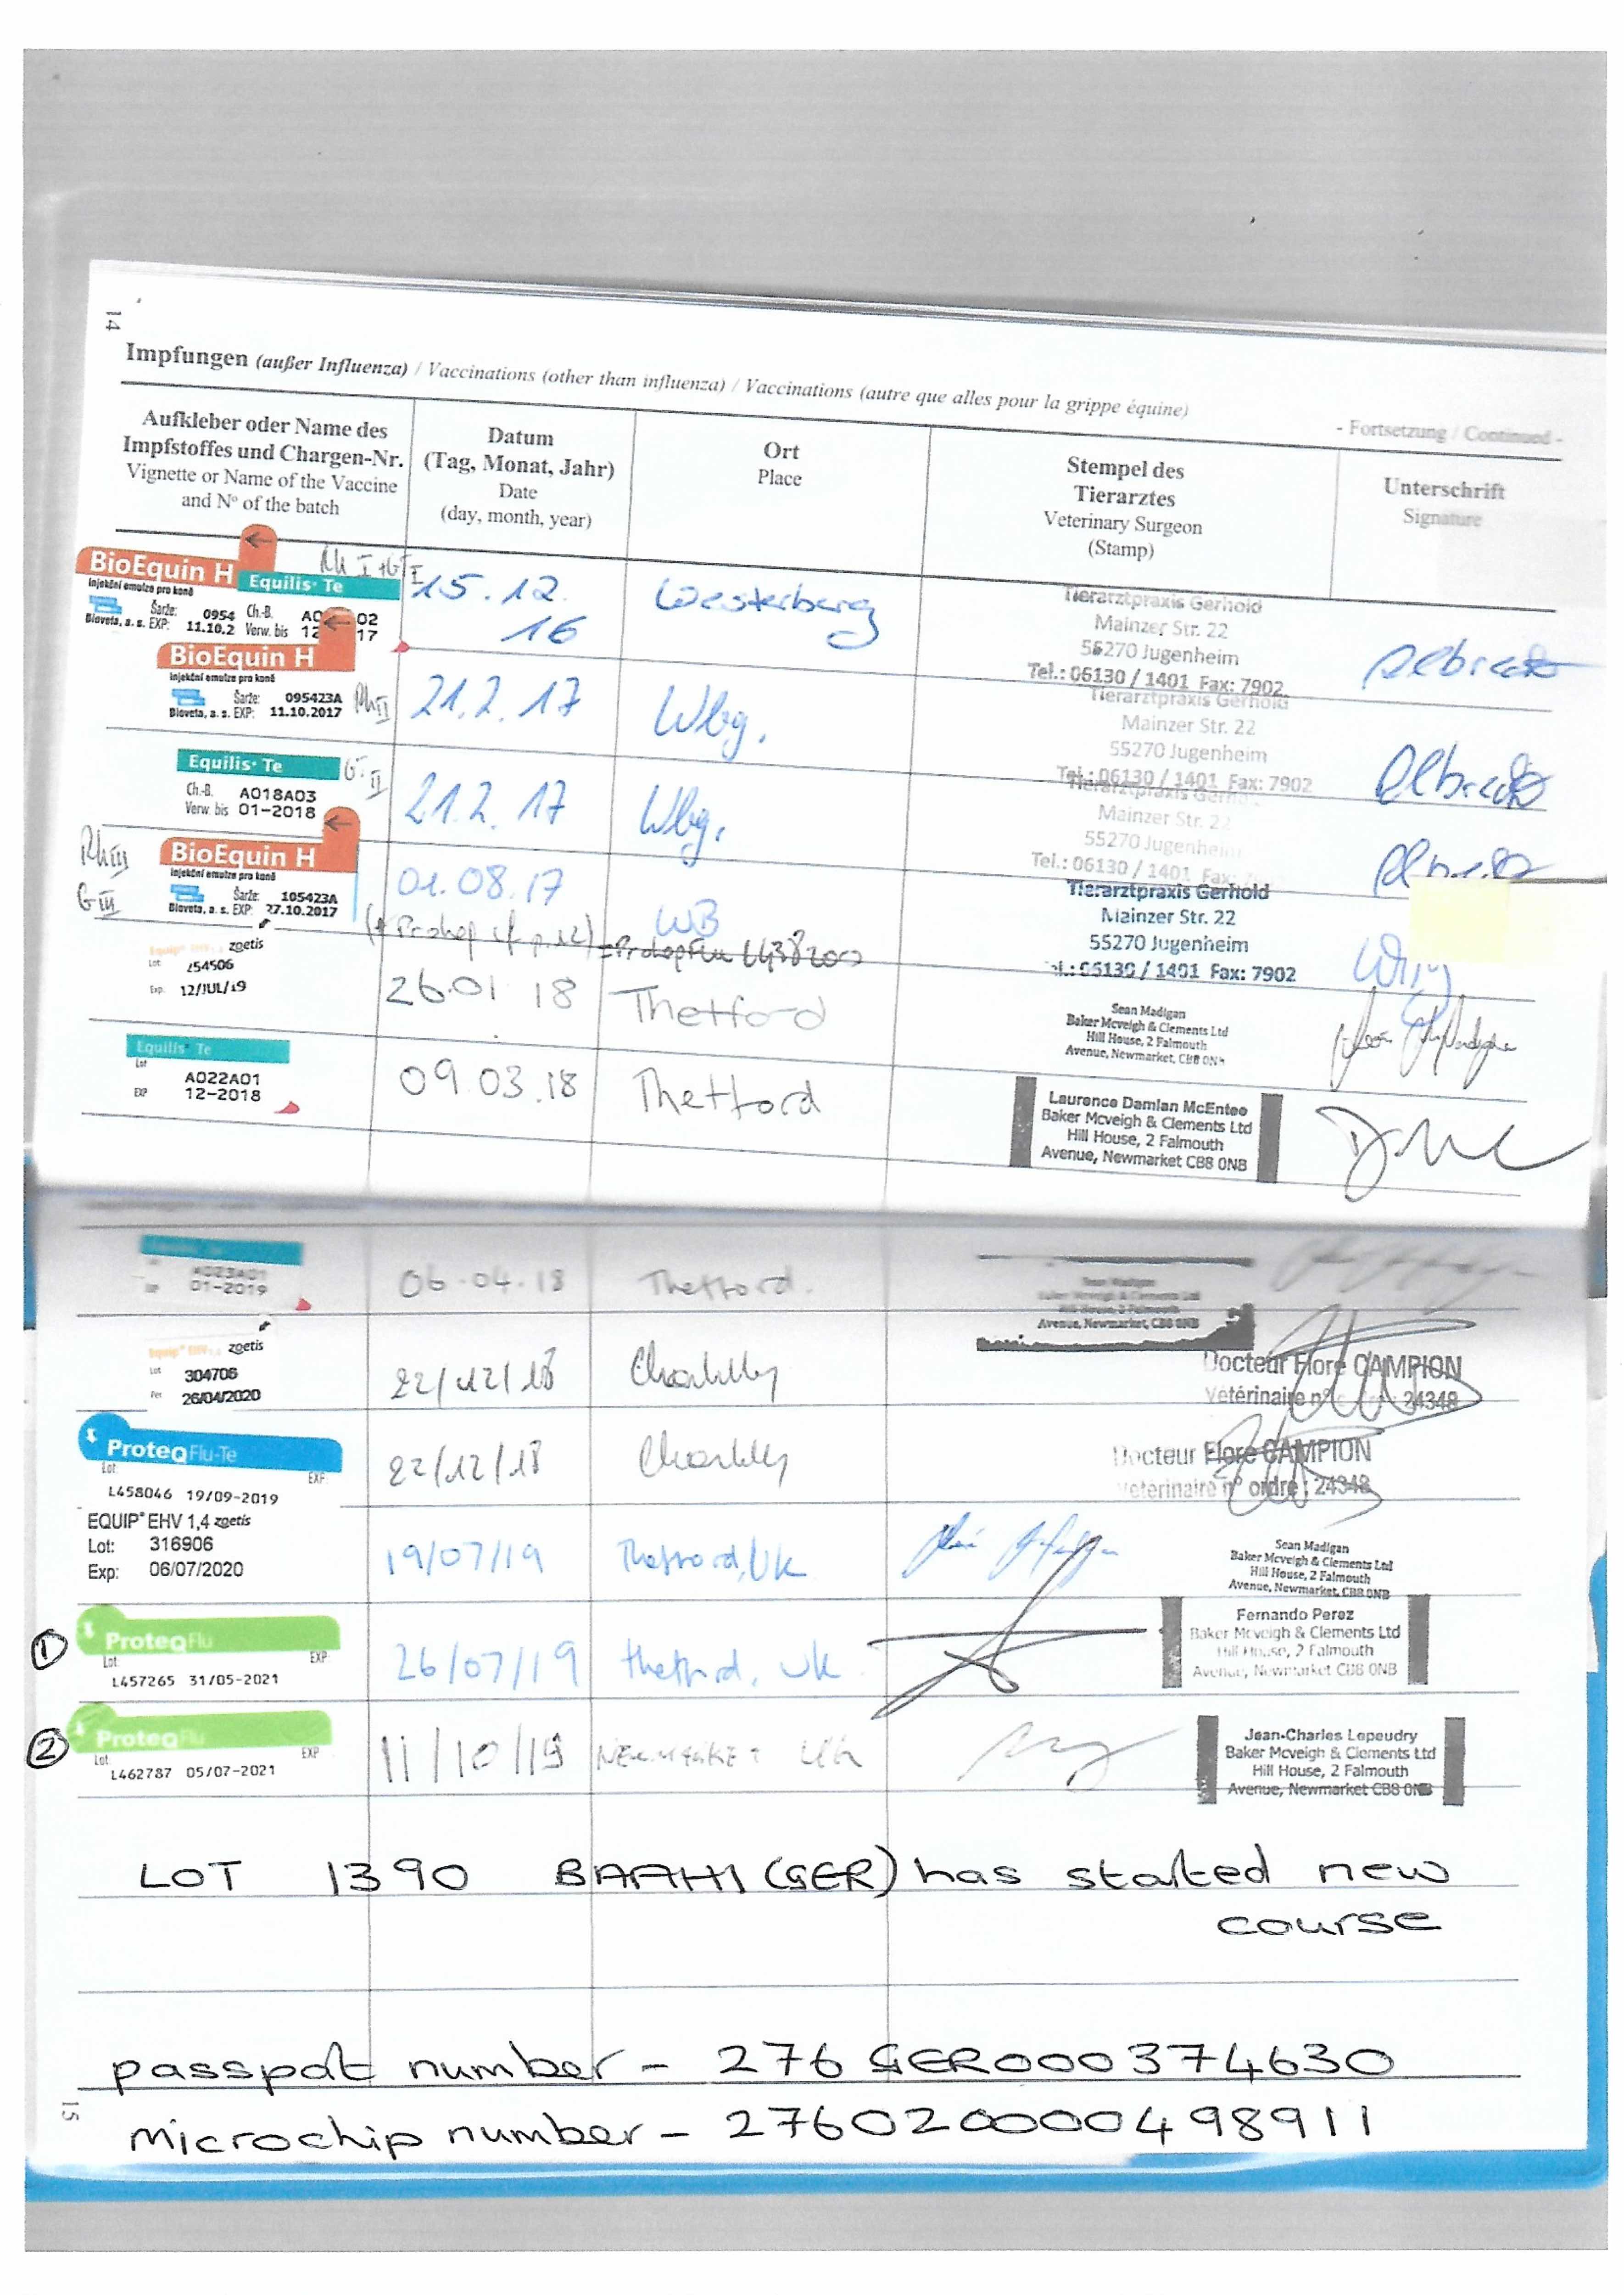 14
Impfungen (außer Influenza) / Vaccinations (other than influenza) / Vaccinations (autre que alles pour la grippe équine)
- Fortsetzung / Continued -
Aufkleber oder Name des Impfstoffes und Chargen-Nr.
Vignette or Name of the Vaccine and Nº of the batch
Datum
(Tag, Monat, Jahr)
Date
(day, month, year)
Ort
Place
Stempel des
Tierarztes
Veterinary Surgeon
(Stamp)
Unterschrift
Signature
BioEquin H
injekční emulze pro koně
Šarže: 0954
Bioveta, a. s. EXP: 11.10.2
Equilis Te
Ch.-B.
Verw. bis
02
17
15.12.
16
Westerberg
Tierarztpraxis Gerhold
Mainzer Str. 22
55270 Jugenheim
Tel.: 06130 / 1401 Fax: 7902
BioEquin H
injekční emulze pro koně
Šarže: 095423A
Bioveta, a. s. EXP: 11.10.2017
Rh II
21.2.17
Wbg.
Tierarztpraxis Gerhold
Mainzer Str. 22
55270 Jugenheim
Tel.: 06130 / 1401 Fax: 7902
Equilis Te
Ch.-B. A018A03
Verw. bis 01-2018
G II
21.2.17
Wbg.
Mainzer Str. 22
55270 Jugenheim
Tel.: 06130 / 1401 Fax:
Rh III
G III
BioEquin H
injekční emulze pro koně
Šarže: 105423A
Bioveta, a. s. EXP: 27.10.2017
01.08.17
WB
Tierarztpraxis Gerhold
Mainzer Str. 22
55270 Jugenheim
Tel.: 06130 / 1401 Fax: 7902
Equip EHV 1,4 zoetis
Lot 254506
Exp. 12/JUL/19
26.01 18
Thetford
Sean Madigan
Baker Mcveigh & Clements Ltd
Hill House, 2 Falmouth
Avenue, Newmarket, CB8 0NB
Equilis Te
Lot A022A01
EXP 12-2018
09.03.18
Thetford
Laurence Damian McEntee
Baker Mcveigh & Clements Ltd
Hill House, 2 Falmouth
Avenue, Newmarket CB8 0NB
A023A01
01-2019
06.04.18
Thetford.
Sean Madigan
Baker Mcveigh & Clements Ltd
Hill House, 2 Falmouth
Avenue, Newmarket, CB8 0NB
Equip EHV 1,4 zoetis
Lot 304706
Per 26/04/2020
22/12/18
Chantilly
Docteur Flore CAMPION
24348
ProteqFlu-Te
Lot EXP
L458046 19/09-2019
22/12/18
Chantilly
Docteur Flore CAMPION
Vétérinaire n° ordre : 24348
EQUIP EHV 1,4 zoetis
Lot: 316906
Exp: 06/07/2020
19/07/19
Thetford, Uk
Sean Madigan
Baker Mcveigh & Clements Ltd
Hill House, 2 Falmouth
Avenue, Newmarket, CB8 0NB
1
ProteqFlu
Lot EXP
L457265 31/05-2021
26/07/19
Thetford, Uk
Fernando Perez
Baker Mcveigh & Clements Ltd
Hill House, 2 Falmouth
Avenue, Newmarket CB8 0NB
2
ProteqFlu
Lot EXP
L462787 05/07-2021
11/10/19
NEWMARKET Uk
Jean-Charles Lepeudry
Baker Mcveigh & Clements Ltd
Hill House, 2 Falmouth
Avenue, Newmarket CB8 0NB
LOT 1390 BAAHI (GER) has started new
course
passport number - 276 GER000374630
15
microchip number - 276020000498911